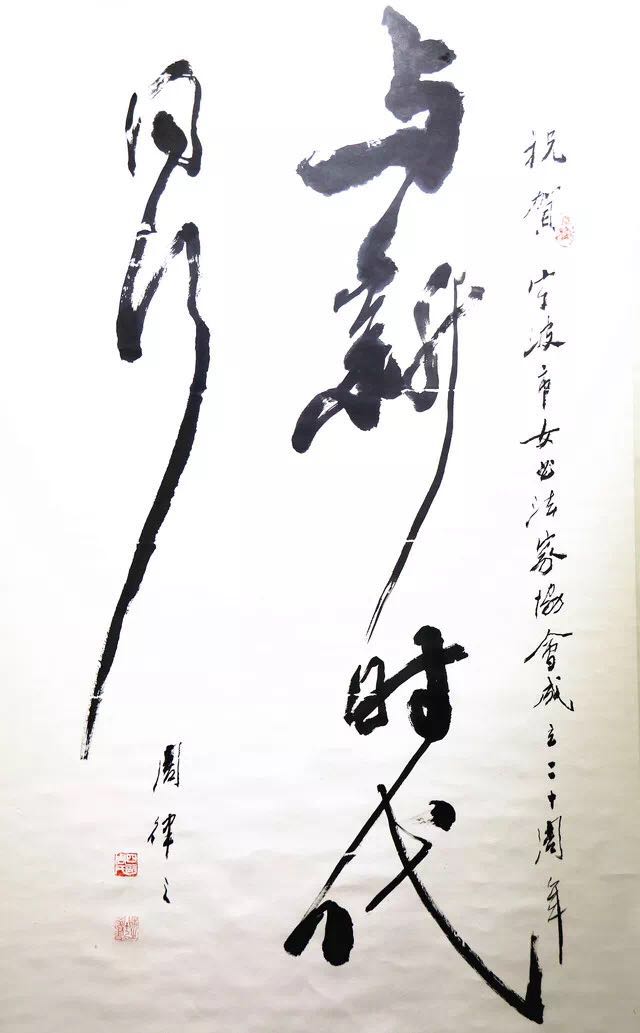 祝賀宁波市女书法家協會成立二十周年
与新时代
同行
周律之